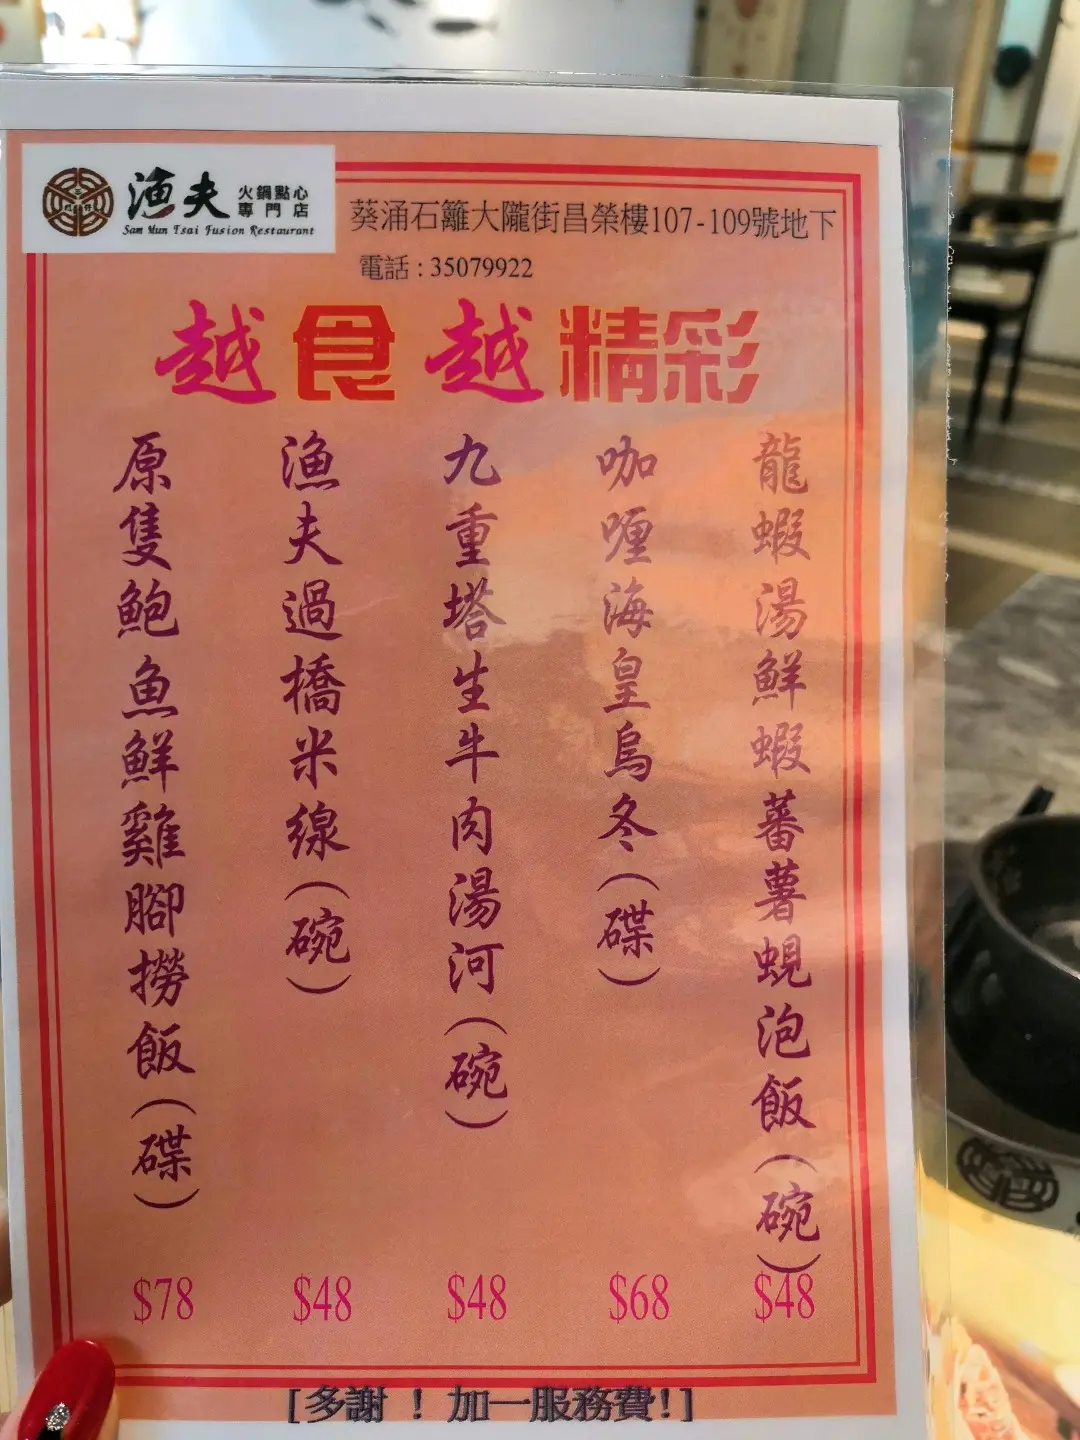 漁夫
火鍋點心
專門店
Sam Mun Tsai Fusion Restaurant
葵涌石籬大隴街昌榮樓107-109號地下
電話 : 35079922
越食越精彩
龍蝦湯鮮蝦蕃薯蜆泡飯(碗)
$48
咖喱海皇烏冬(碟)
$68
九重塔生牛肉湯河(碗)
$48
漁夫過橋米線(碗)
$48
原隻鮑魚鮮雞腳撈飯(碟)
$78
[多謝 ! 加一服務費!]